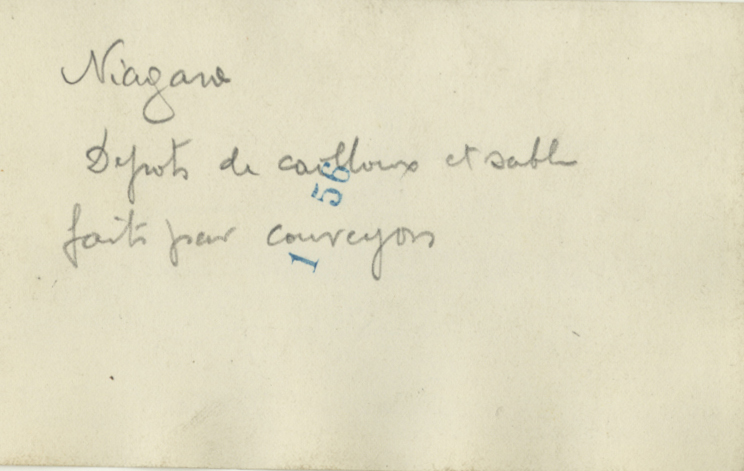 Niagara
Depots de cailloux et sable
faits par conveyors
1 56